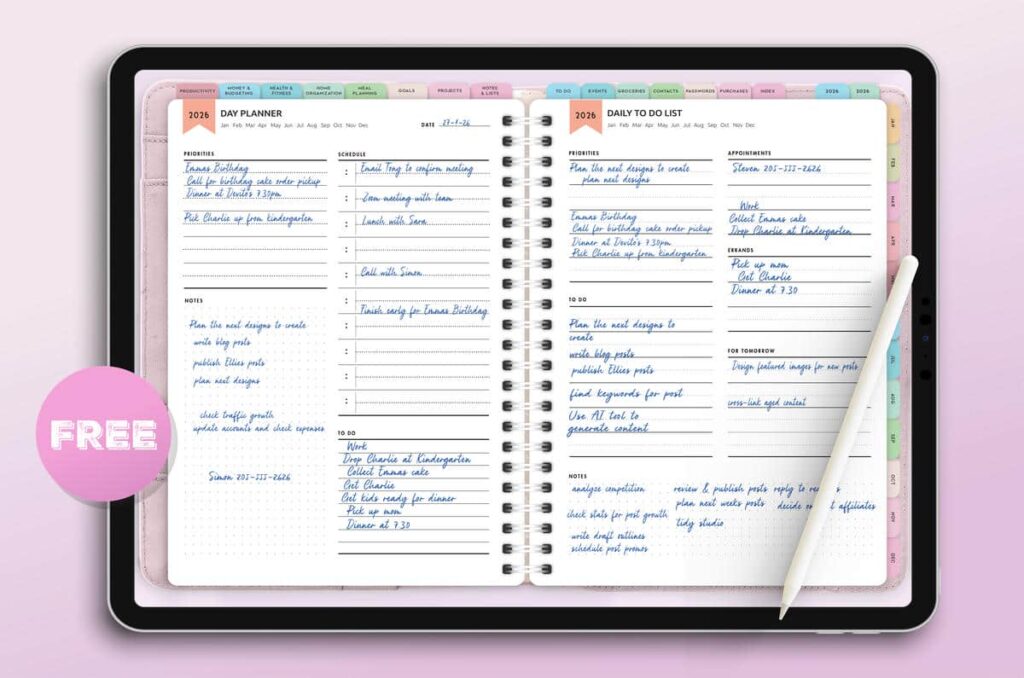 PRODUCTIVITY
MONEY & BUDGETING
HEALTH & FITNESS
HOME ORGANIZATION
MEAL PLANNING
GOALS
PROJECTS
NOTES & LISTS
TO DO
EVENTS
GROCERIES
CONTACTS
PASSWORDS
PURCHASES
INDEX
2026
2026
2026
DAY PLANNER
Jan Feb Mar Apr May Jun Jul Aug Sep Oct Nov Dec
DATE
PRIORITIES
Emmas Birthday
Call for birthday cake order pickup
Dinner at Devito's 7.30pm
Pick Charlie up from kindergarten
NOTES
Plan the next designs to create
write blog posts
publish Ellies posts
plan next designs
check traffic growth
update accounts and check expenses
Simon 205-111-2626
SCHEDULE
Email Tony to confirm meeting
Zoom meeting with team
Lunch with Sara
Call with Simon
Finish early for Emmas Birthday
TO DO
Work
Drop Charlie at Kindergarten
Collect Emmas cake
Get Charlie
Get kids ready for dinner
Pick up mom
Dinner at 7.30
2026
DAILY TO DO LIST
Jan Feb Mar Apr May Jun Jul Aug Sep Oct Nov Dec
PRIORITIES
Plan the next designs to create
plan next designs
Emmas Birthday
Call for birthday cake order pickup
Dinner at Devito's 7.30pm
Pick Charlie up from kindergarten
TO DO
Plan the next designs to
create
write blog posts
publish Ellies posts
find keywords for post
Use AI tool to
generate content
APPOINTMENTS
Steven 205-111-2626
Work
Collect Emmas cake
Drop Charlie at Kindergarten
ERRANDS
Pick up mom
Get Charlie
Dinner at 7.30
FOR TOMORROW
Design featured images for new posts
cross-link aged content
NOTES
analyze competition
check stats for post growth
write draft outlines
schedule post promos
review & publish posts
plan next weeks posts
tidy studio
reply to
decide affiliates
JAN
FEB
MAR
APR
JUL
AUG
SEP
OCT
NOV
DEC
FREE